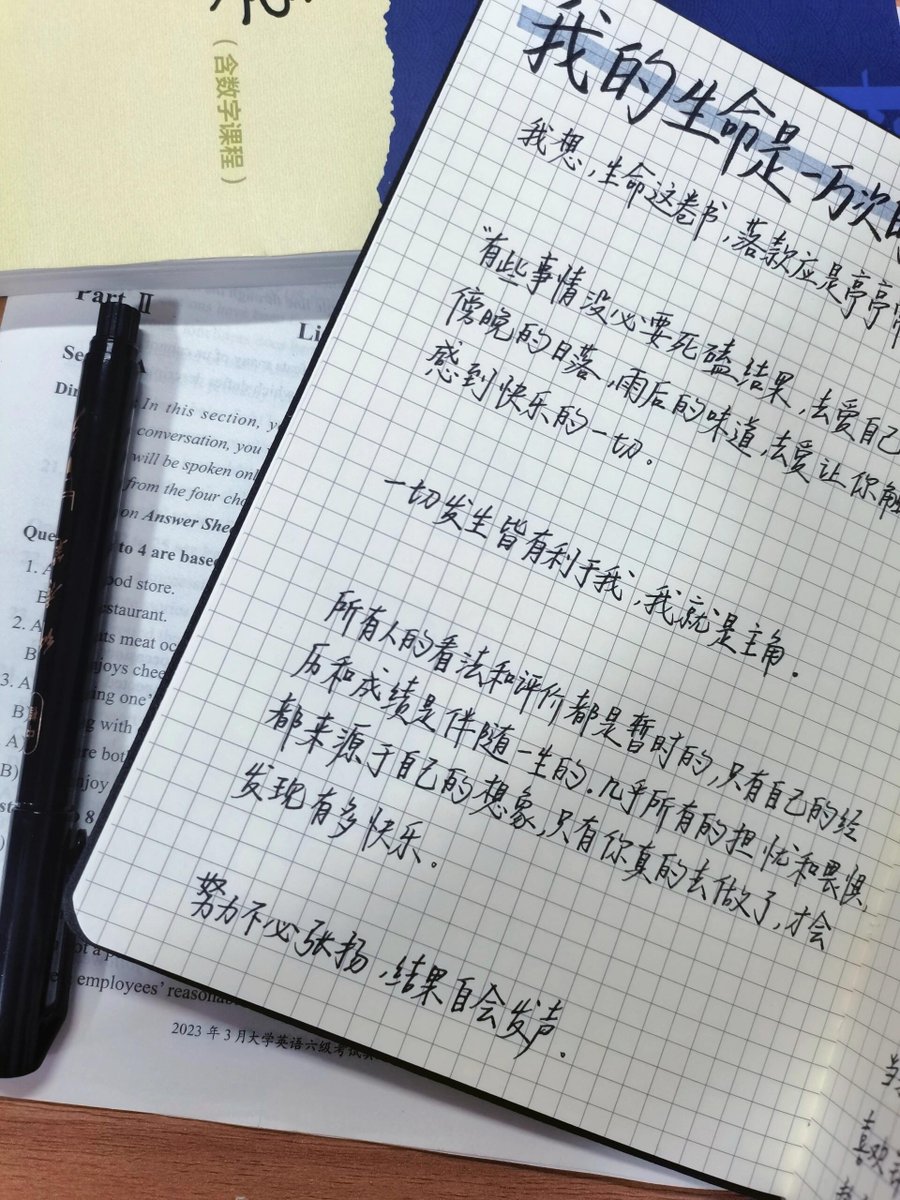 （含数字课程）
我的生命是一万次的
我想，生命这卷书，落款应是亭亭
“有些事情没必要死磕结果，去爱自己
傍晚的日落，雨后的味道，去爱让你触
感到快乐的一切．
一切发生皆有利于我，我就是主角．
所有人的看法和评价都是暂时的，只有自己的经
历和成绩是伴随一生的．几乎所有的担忧和畏惧，
都来源于自己的想象，只有你真的去做了，才会
发现有多快乐．
努力不必张扬，结果自会发声．
喜欢
Part Ⅱ
Li
In this section, y
conversation, you
will be spoken onl
from the four cho
on Answer Shee
to 4 are based
1. A
food store.
B
restaurant.
2. A
its meat oc
B
enjoys chee
3. A
ing one’
B)
g with
A)
ere bot
B)
njoy
8
employees’ reasonab
2023 年 3 月大学英语六级考试真